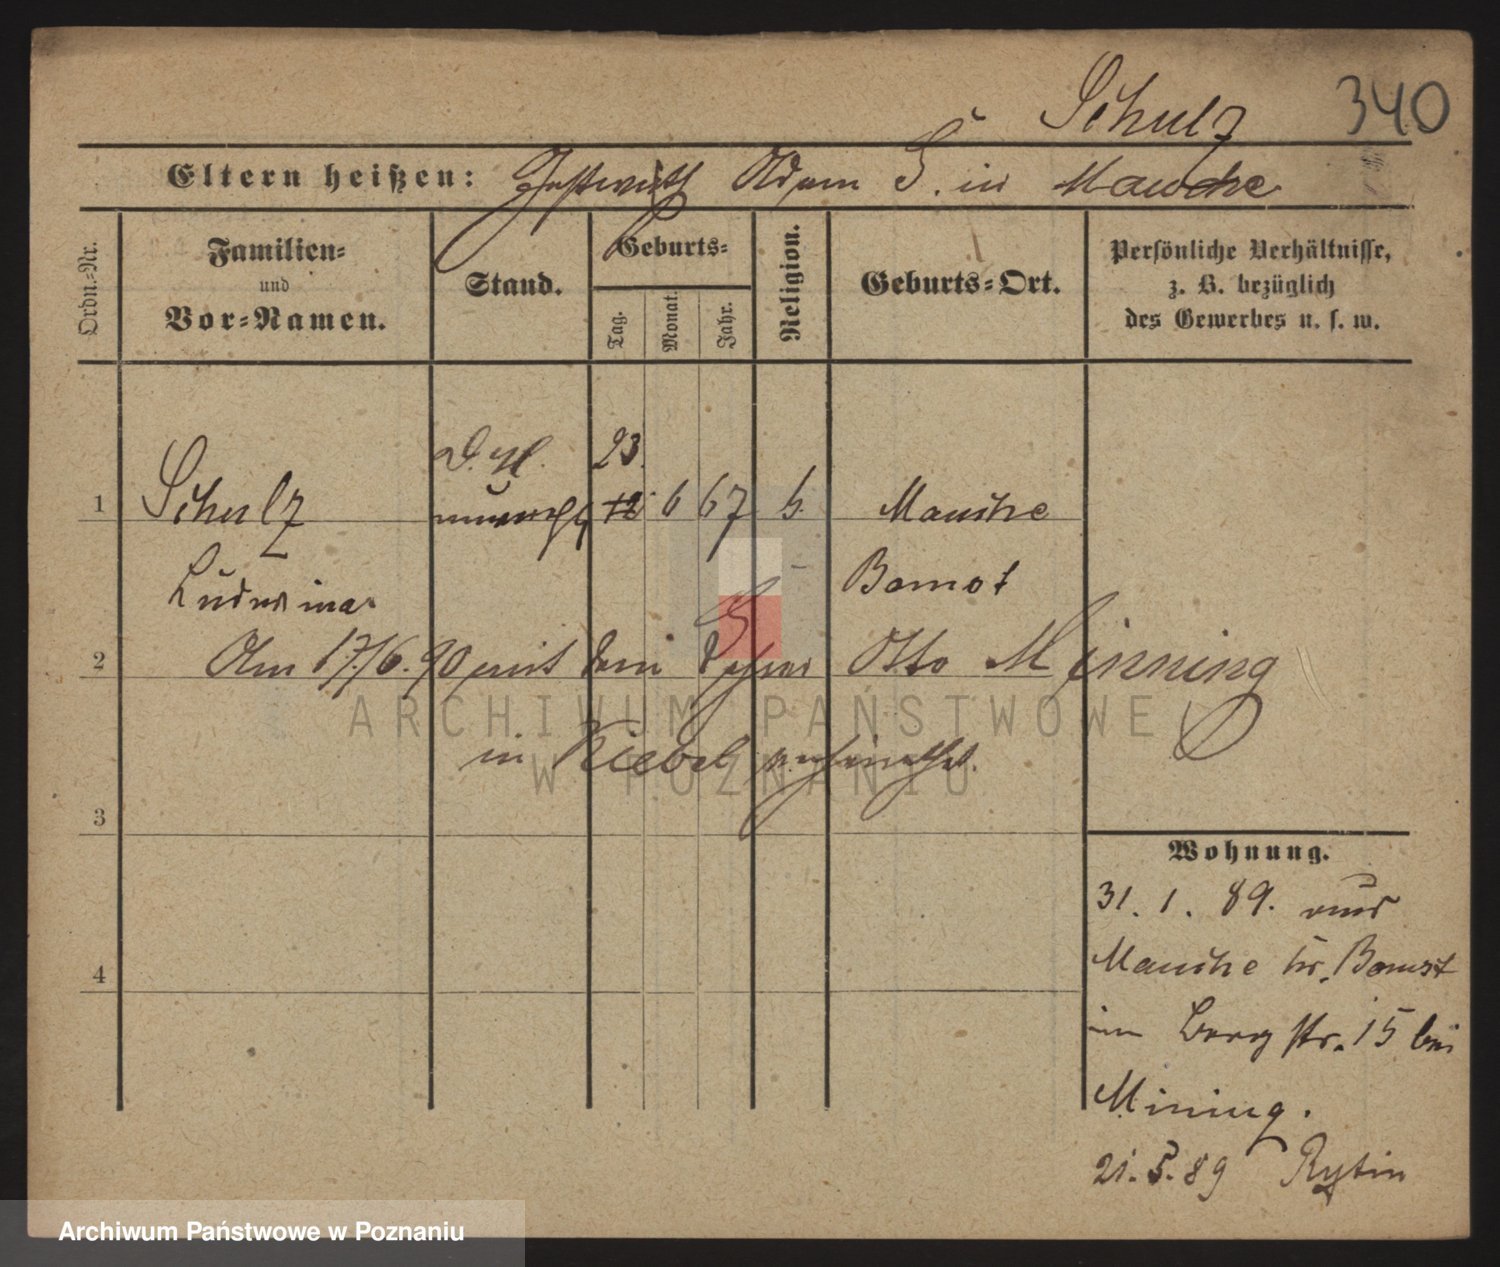 Schulz 340
Eltern heißen: Gastwirth Adam S. in Mauche
Ordn.-Nr.
Familien-
und
Vor-Namen.
Stand.
Geburts-
Tag. Monat. Jahr.
Religion.
Geburts-Ort.
Persönliche Verhältnisse,
z. B. bezüglich
des Gewerbes u. s. w.
23.
1 Schulz unverehl 12 6 67 Mauche
Bomst
2 Am 17/6. 90 mit dem Otto Minning
in Kiebel verheirathet.
3
4
Wohnung.
31. 1. 89. aus
Mauche Kr. Bomst
in Bergstr. 15 bei
Mining.
21. 5. 89 Rytin
ARCHIWUM PAŃSTWOWE
W POZNANIU
Archiwum Państwowe w Poznaniu